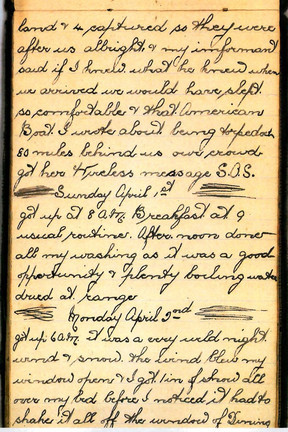 land & 4 captured so they were
after us allright & my informant
said if I knew what he knew when
we arrived we would have slept
so comfortable & that American
Boat I wrote about being torpedoed
80 miles behind us our crowd
got her Wireless message S.O.S.
Sunday April 1st
got up at 8 A.M. Breakfast at 9
usual routine. After noon done
all my washing as it was a good
opportunity & plenty boiling water
dried at range
Monday April 2nd
got up 6 A.M. it was a very wild night
wind & snow. the wind blew my
window open & I got 1 in of snow all
over my bed before I noticed it had to
shake it all off the window of Dining